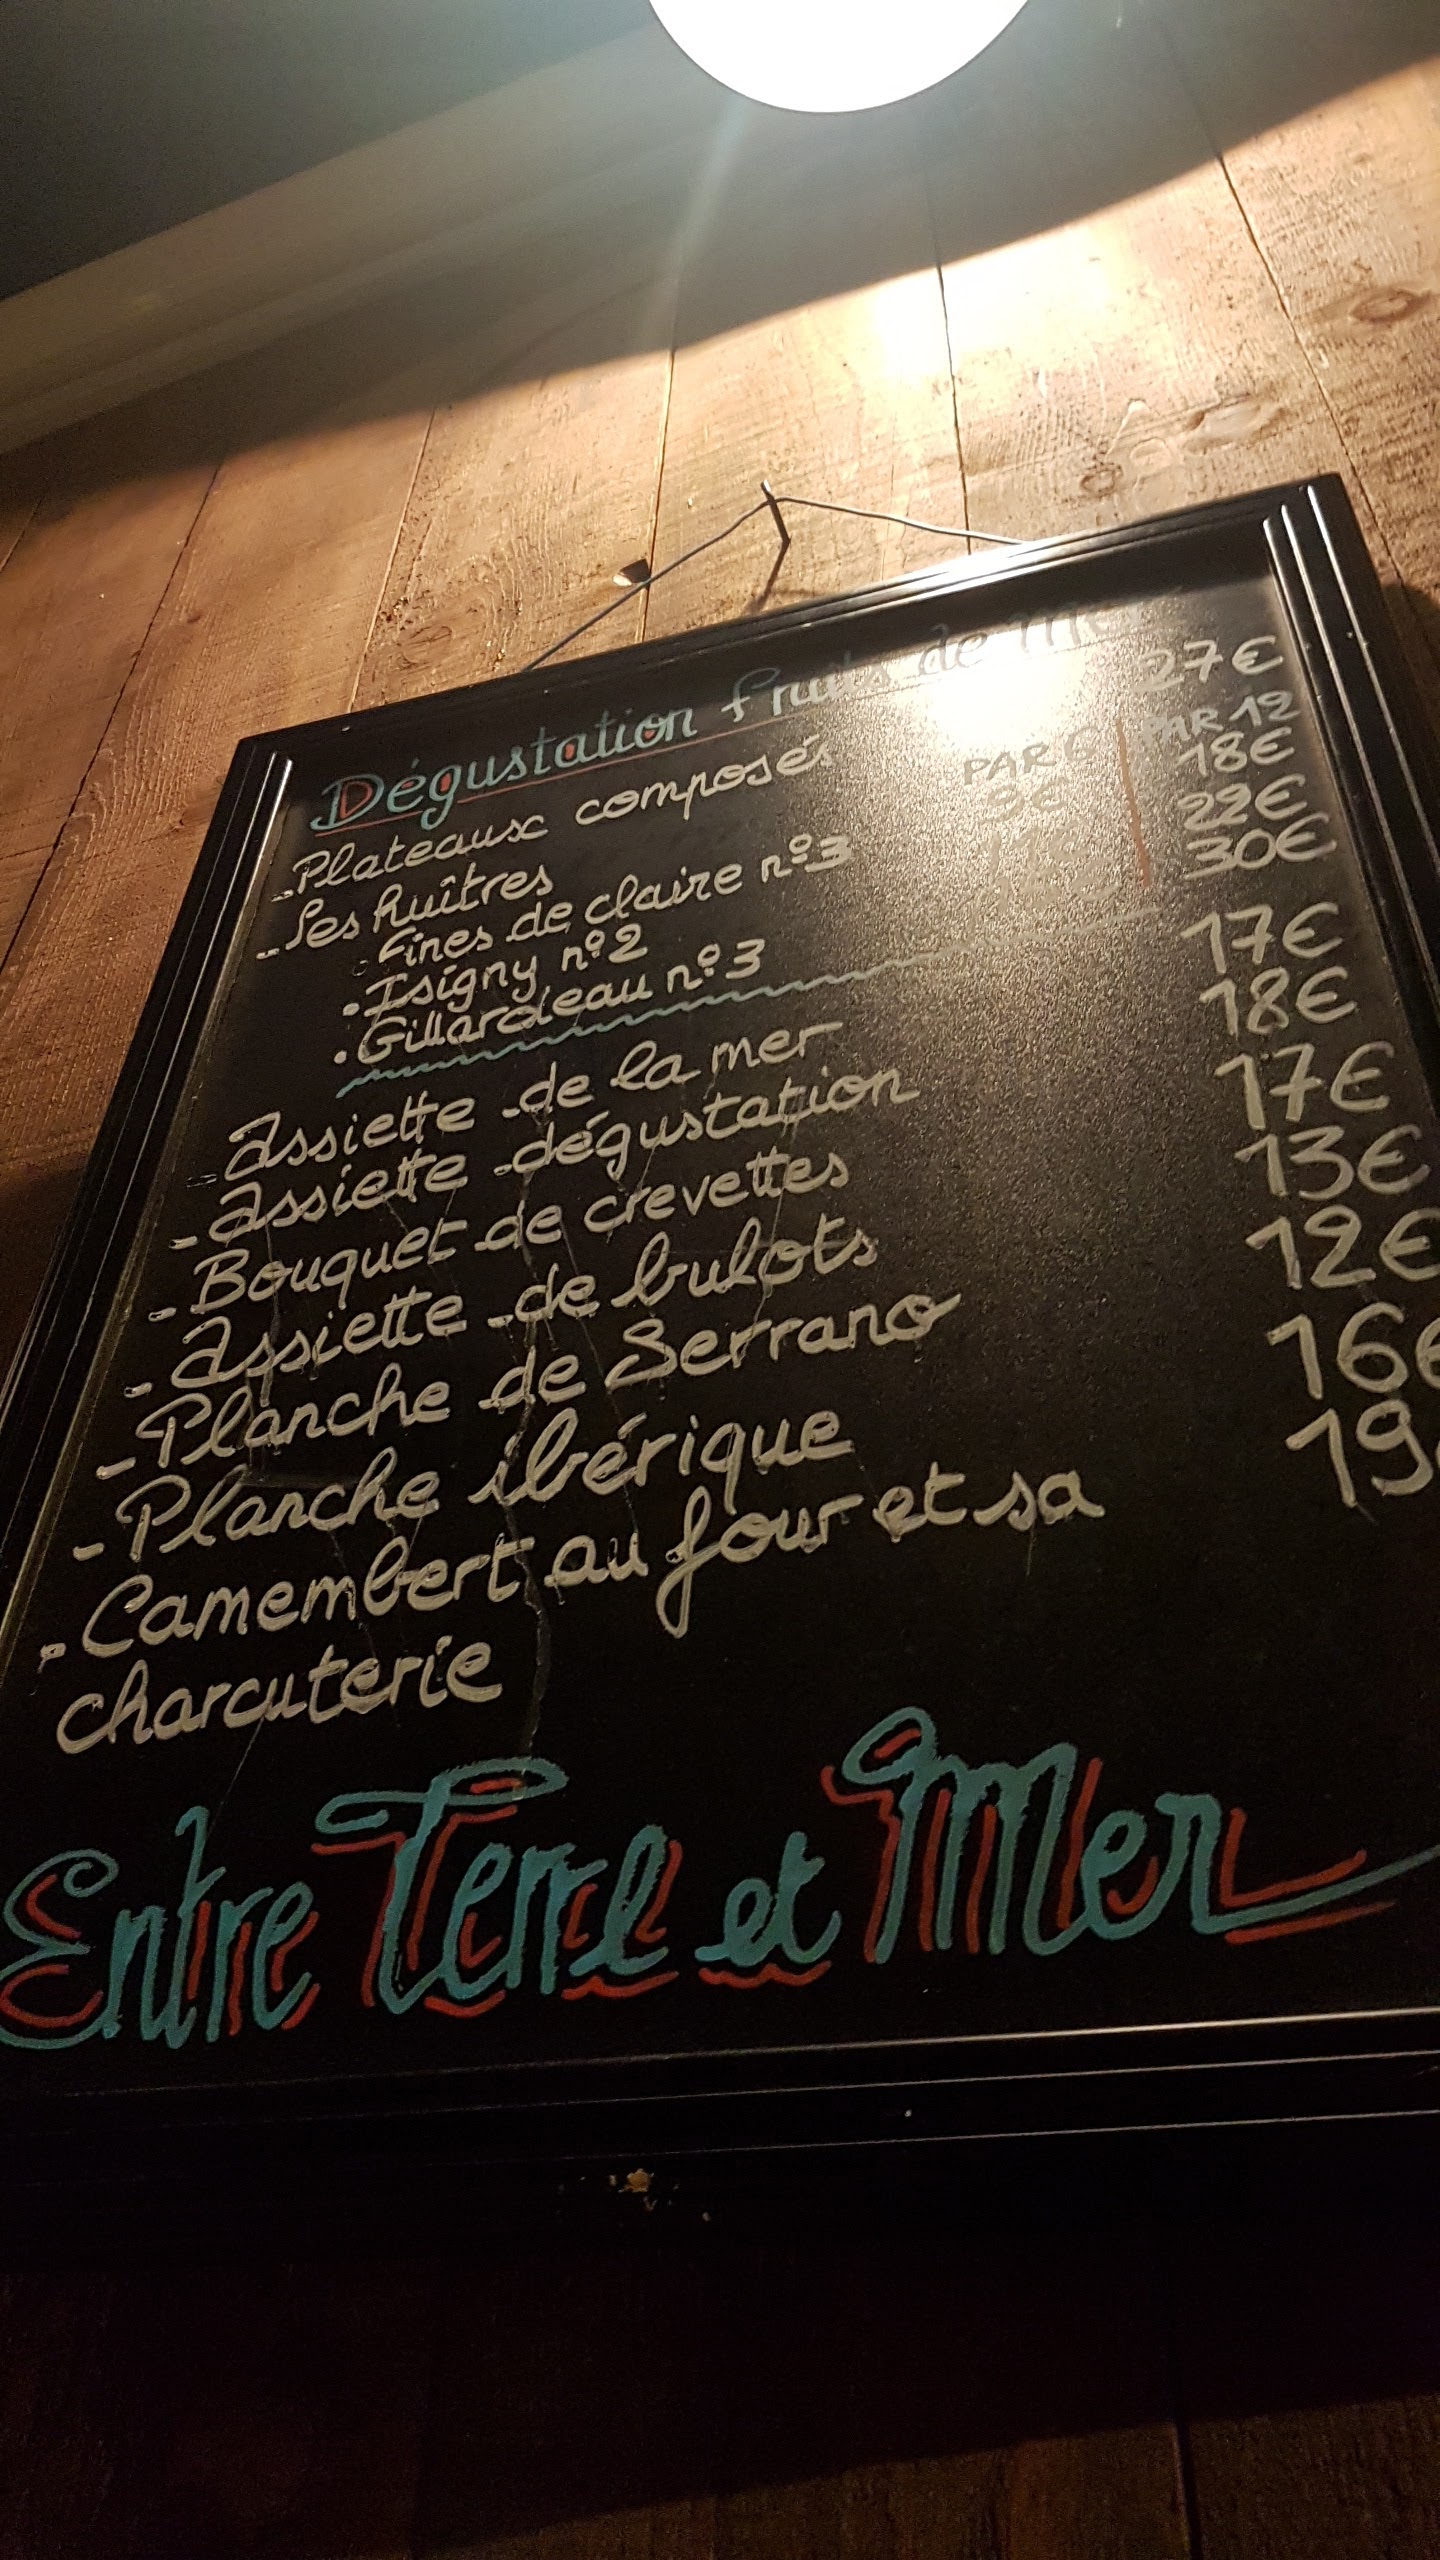 Dégustation fruits de Mer
- Plateaux composés 27€
- Les huîtres PAR 6 PAR 12
- Fines de claire n°3 9€ 18€
• Isigny n°2 11€ 22€
• Gillardeau n°3 30€
- Assiette de la mer 17€
- Assiette dégustation 18€
- Bouquet de crevettes 17€
- Assiette de bulots 13€
- Planche de Serrano 12€
- Planche ibérique 16€
- Camembert au four et sa 19€
charcuterie
Entre Terre et Mer